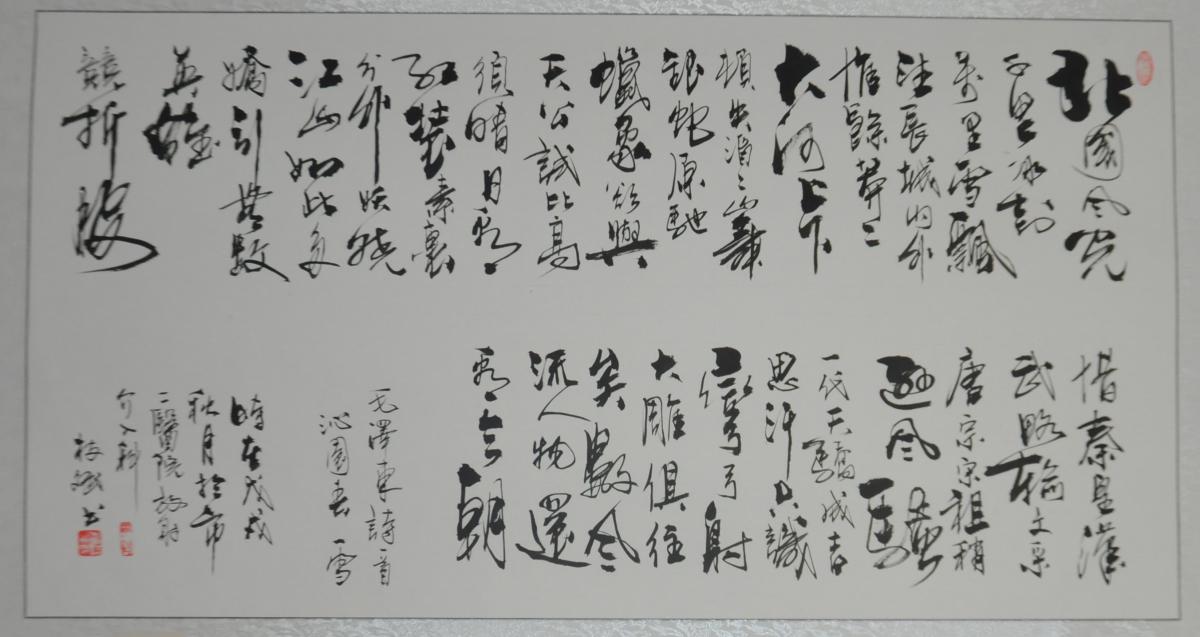 北國風光
千里冰封
萬里雪飄
望長城内外
惟餘莽〻
大河上下
頓失滔〻山舞
銀蛇原馳
蠟象欲與
天公試比高
須晴日看
紅裝素裹
分外妖嬈
江山如此多
嬌引無數
英雄
競折腰
惜秦皇漢
武略輸文采
唐宗宋祖稍
遜風騷
一代天驕成吉
思汗只識
彎弓射
大雕俱往
矣數風
流人物還
看今朝
毛澤東詩一首
沁園春 雪
時在戊戌
秋月於市
二醫院放射
介入科
書